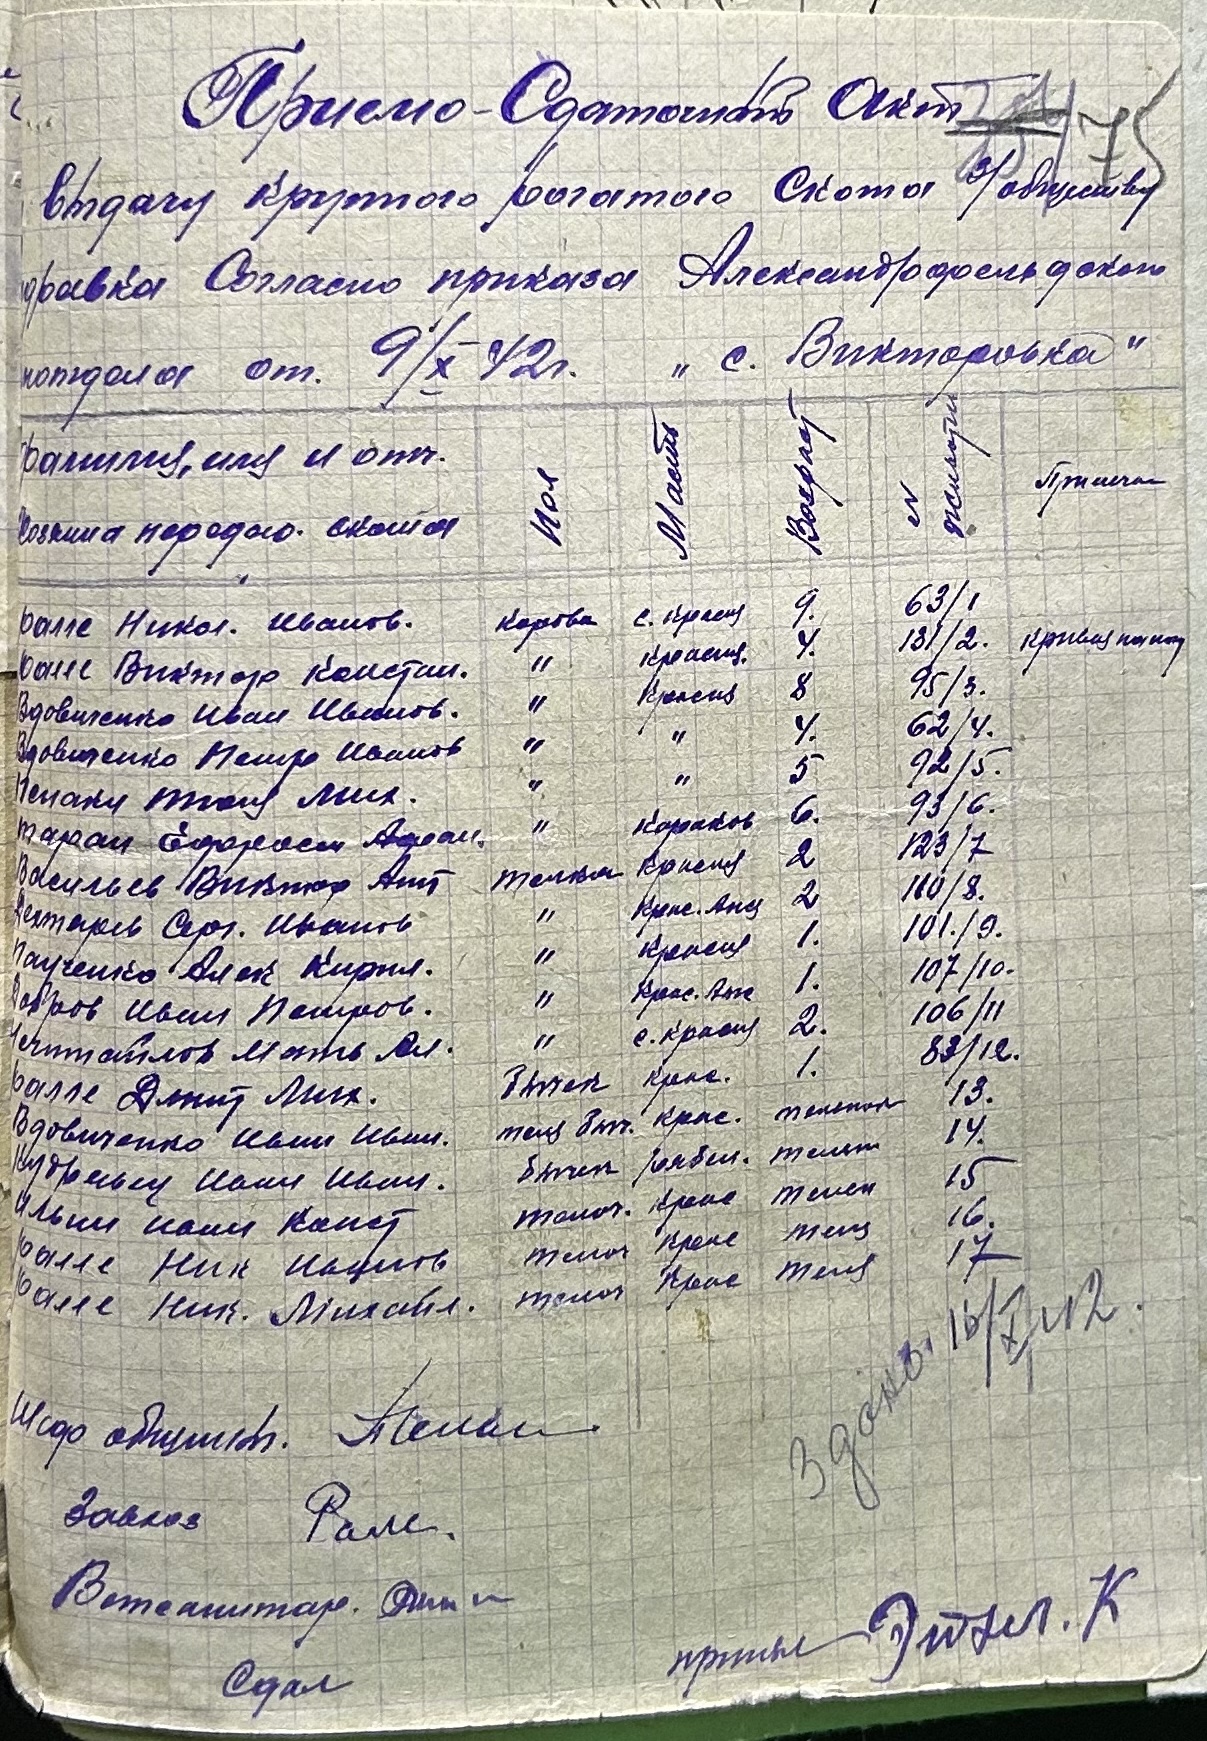 Приемо-Сдаточный Акт
75
выдачу крупного рогатого скота з/обществу
согласно приказа Александрофельдского
от. 9/X 42 г. „с. Викторовка"
Фамилия, имя и отч.
Хозяина передав. скота
Пол
Масть
Возраст
№
Примечан
Ралле Никол. Иванов. корова с. красн 9. 63/1
Ралле Виктор Констан. " красная. 4. 131/2.
Вдовиченко Иван Иванов. " красн 8 95/3.
Вдовиченко Петро Иванов " " 4. 62/4.
Мих. " " 5 92/5.
Таран " 6. 93/6.
Васильев Виктор Ант телка красн 2 123/7
Дехтарев Серг. Иванов " крас. 2 110/8.
Наученко Алек Кирил. " красн 1. 101/9.
Бобров Иван Петров. " крас. 1. 107/10.
" с. красн 2. 106/11
Ралле Дмит Мих. бычек крас. 1. 83/12.
Вдовиченко Иван Иван. тел быч. крас. теленок 13.
Иван Иван. бычек рябой. телен 14.
Ильин Иван Конст телоч. крас телен 15
Ралле Ник Иванов телоч крас тел 16.
Ралле Ник. Михайл. телоч крас тел 17
Здано. 16/X 42.
Шеф обществ.
Завхоз Ралле.
Ветсанитар.
Сдал
принял К